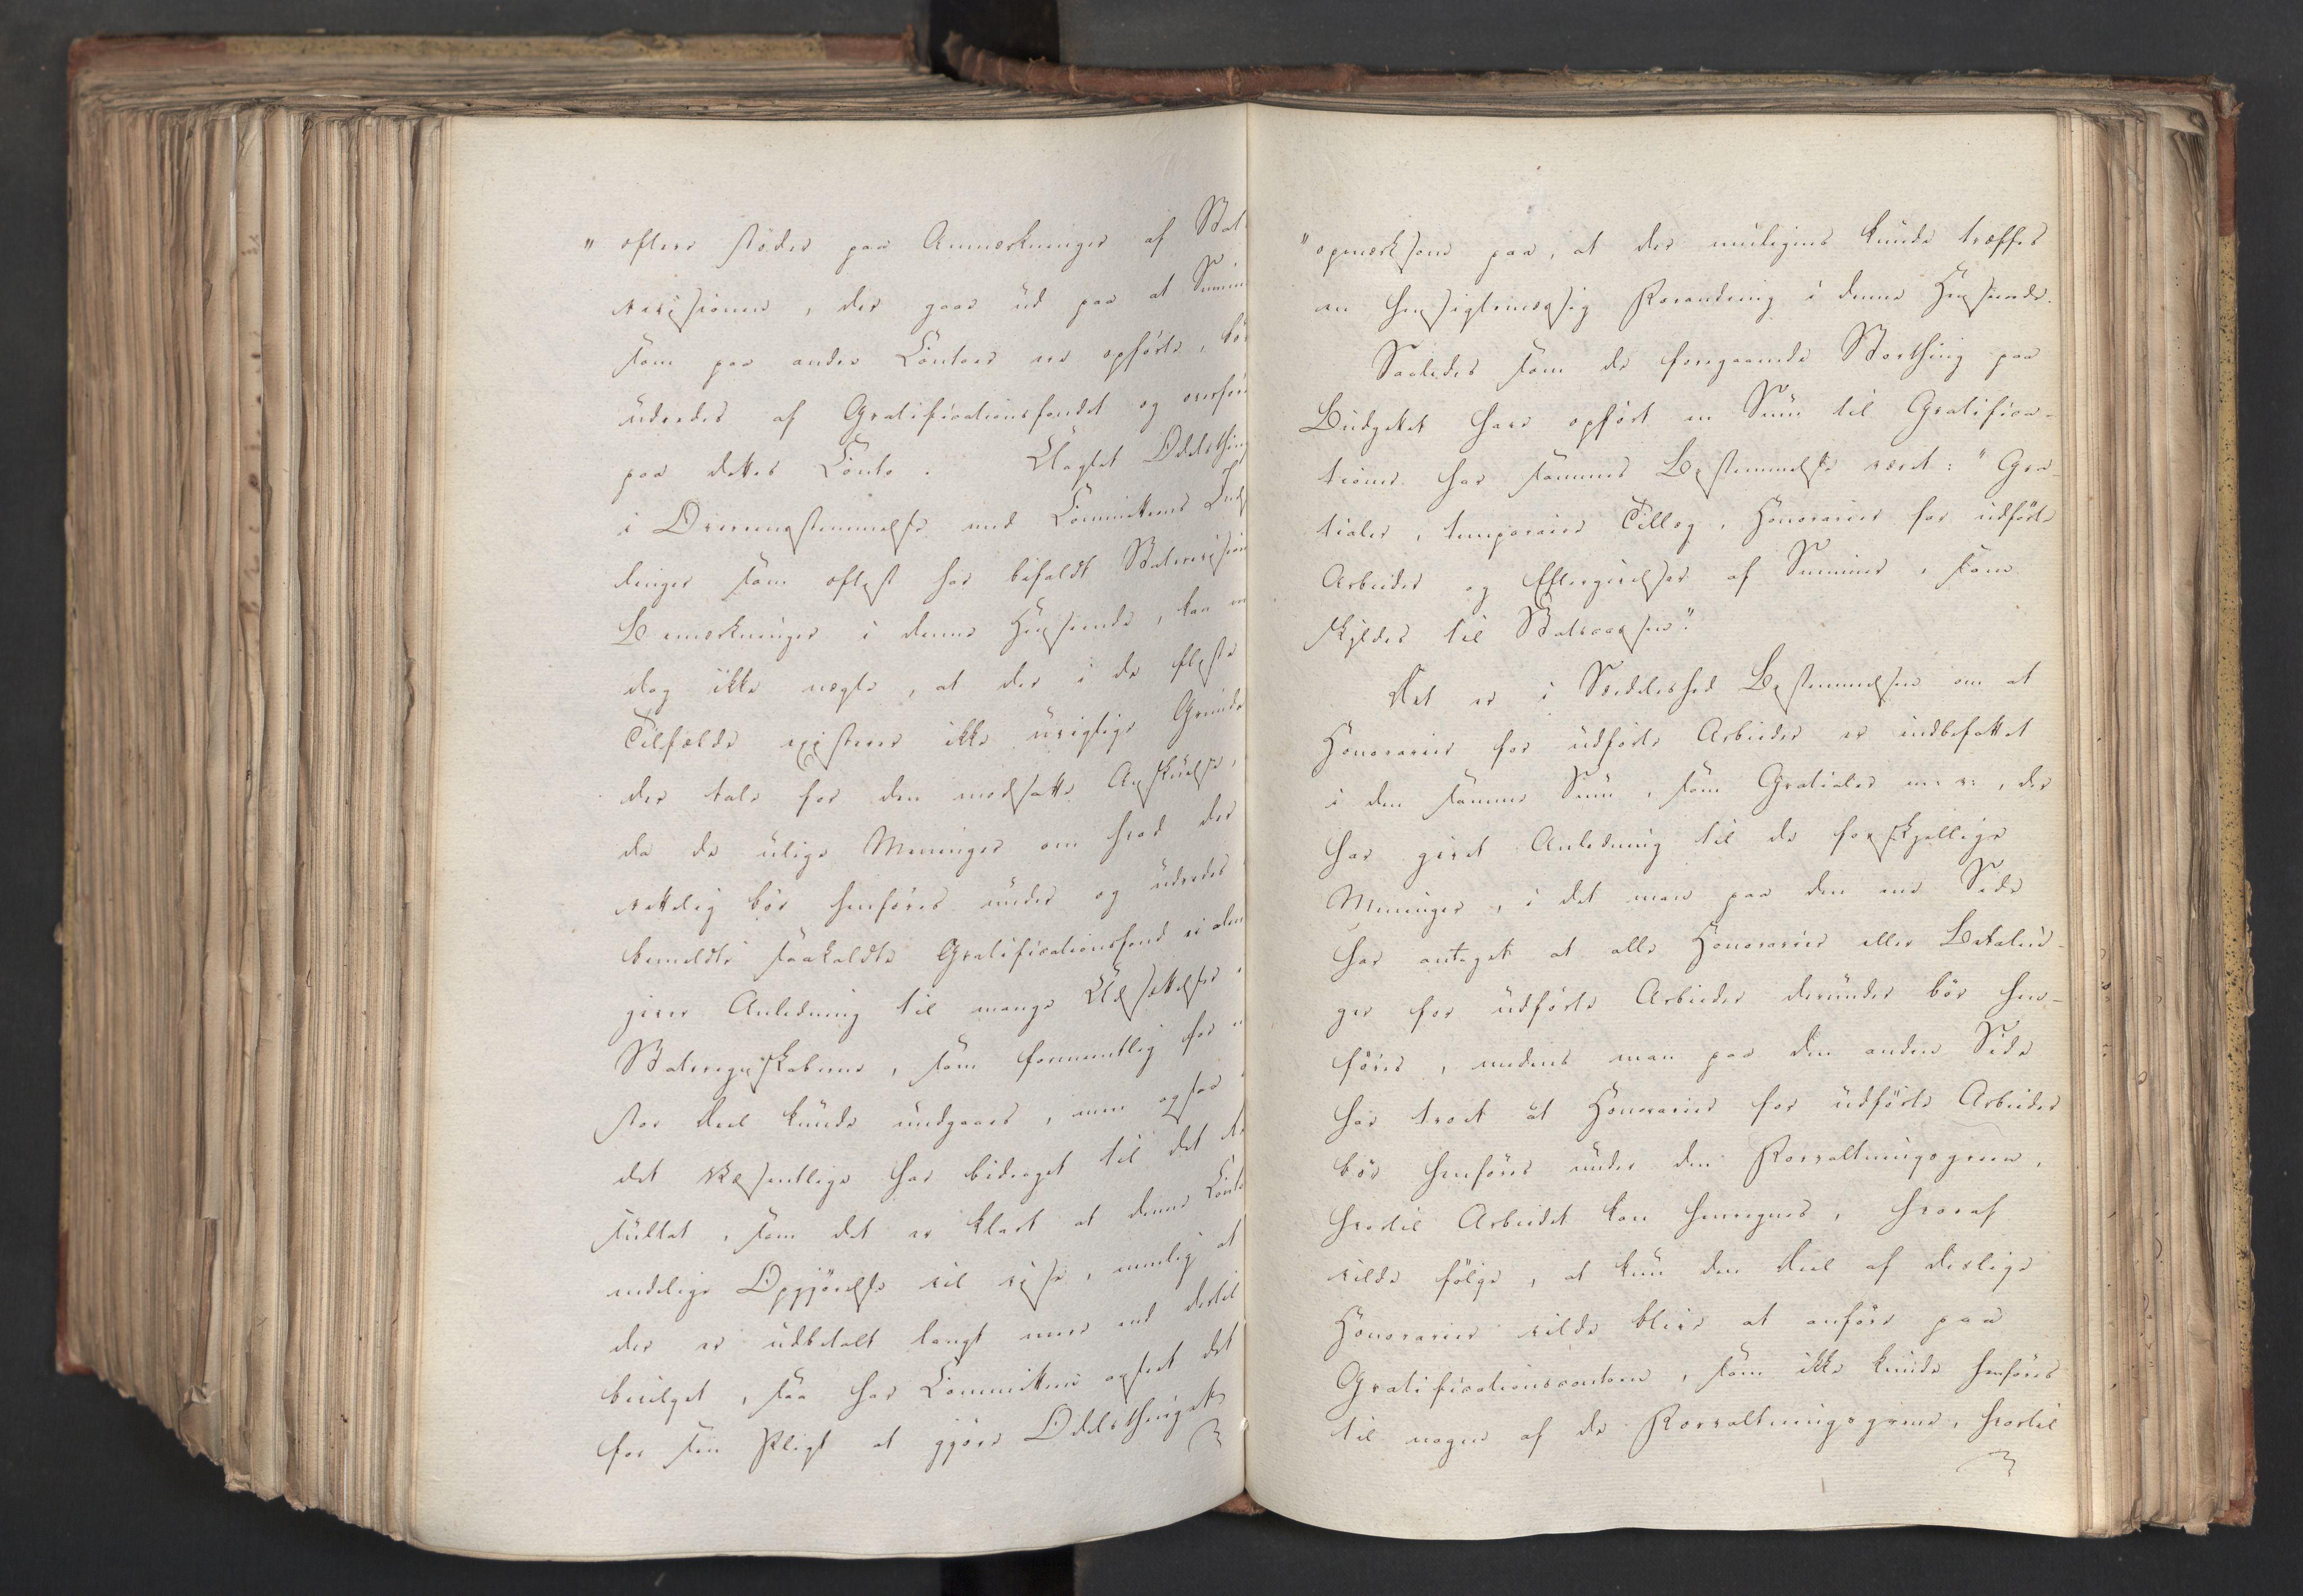 " oftere støder paa Anmærkninger af Stat
revisionen, der gaar ud paa at Summe
som paa andre Contoer ere opførte, bör
udredes af Gratificationsfondet og overför
paa dettes Conto. Uagtet Odelsthing
i Overeensstemmelse med Committeens Ind
linger som oftest har bifaldt Statsrevision
Bemærkninger i denne Henseende, kan m
dog ikke nægte, at der i de fleste
Tilfælde existerer ikke uvigtige Grunde
der tale for den modsatte Anskuelse,
da de ulige Meninger om hvad der
rettelig bör henföres under og udredes
bemeldte saakaldte Gratificationsfond ei alen
giver Anledning til mange Udsættelser i
Statsregnskaberne, som formeentlig for en
stor Deel kunde undgaaes, men ogsaa
det Væsentlige har bidraget til det Re
sultat, som det er klart at denne Conto
endelige Opgjörelse vil vise, nemlig at
der er udbetalt langt mere end dertil
bevilget, saa har Committeen anseet det
for sin Pligt at gjöre Odelsthinget
"opmærksom paa, at der muligens kunde træffes
en hensigtsmæssig Forandring i denne Henseende.
Saaledes som de foregaaende Storthing paa
Budgettet have opfört en Sum til Gratifica-
tioner har sammes Bestemmelse været: "Gra-
tialer, temporaire Tillæg, Honorarier for udförte
Arbeider og Eftergivelser af Summer, som
skyldes til Statscassen".
Det er i Særdeleshed Bestemmelsen om at
Honorarier for udförte Arbeider er indbefattet
i den samme Sum, som Gratialer m: v:, der
har givet Anledning til de forskjellige
Meninger, i det man paa den ene Side
har antaget at alle Honorarier eller Betalin-
ger for udförte Arbeider derunder bör hen-
föres, medens man paa den anden Side
har troet at Honorarier for udförte Arbeider
bör henföres under den Forvaltningsgreen,
hvortil Arbeidet kan henregnes, hvoraf
vilde fölge, at kun den Deel af deslige
Honorarier vilde blive at anföre paa
Gratificationscontoen, som ikke kunde henföres
til nogen af de Forvaltningsgrene, hvortil